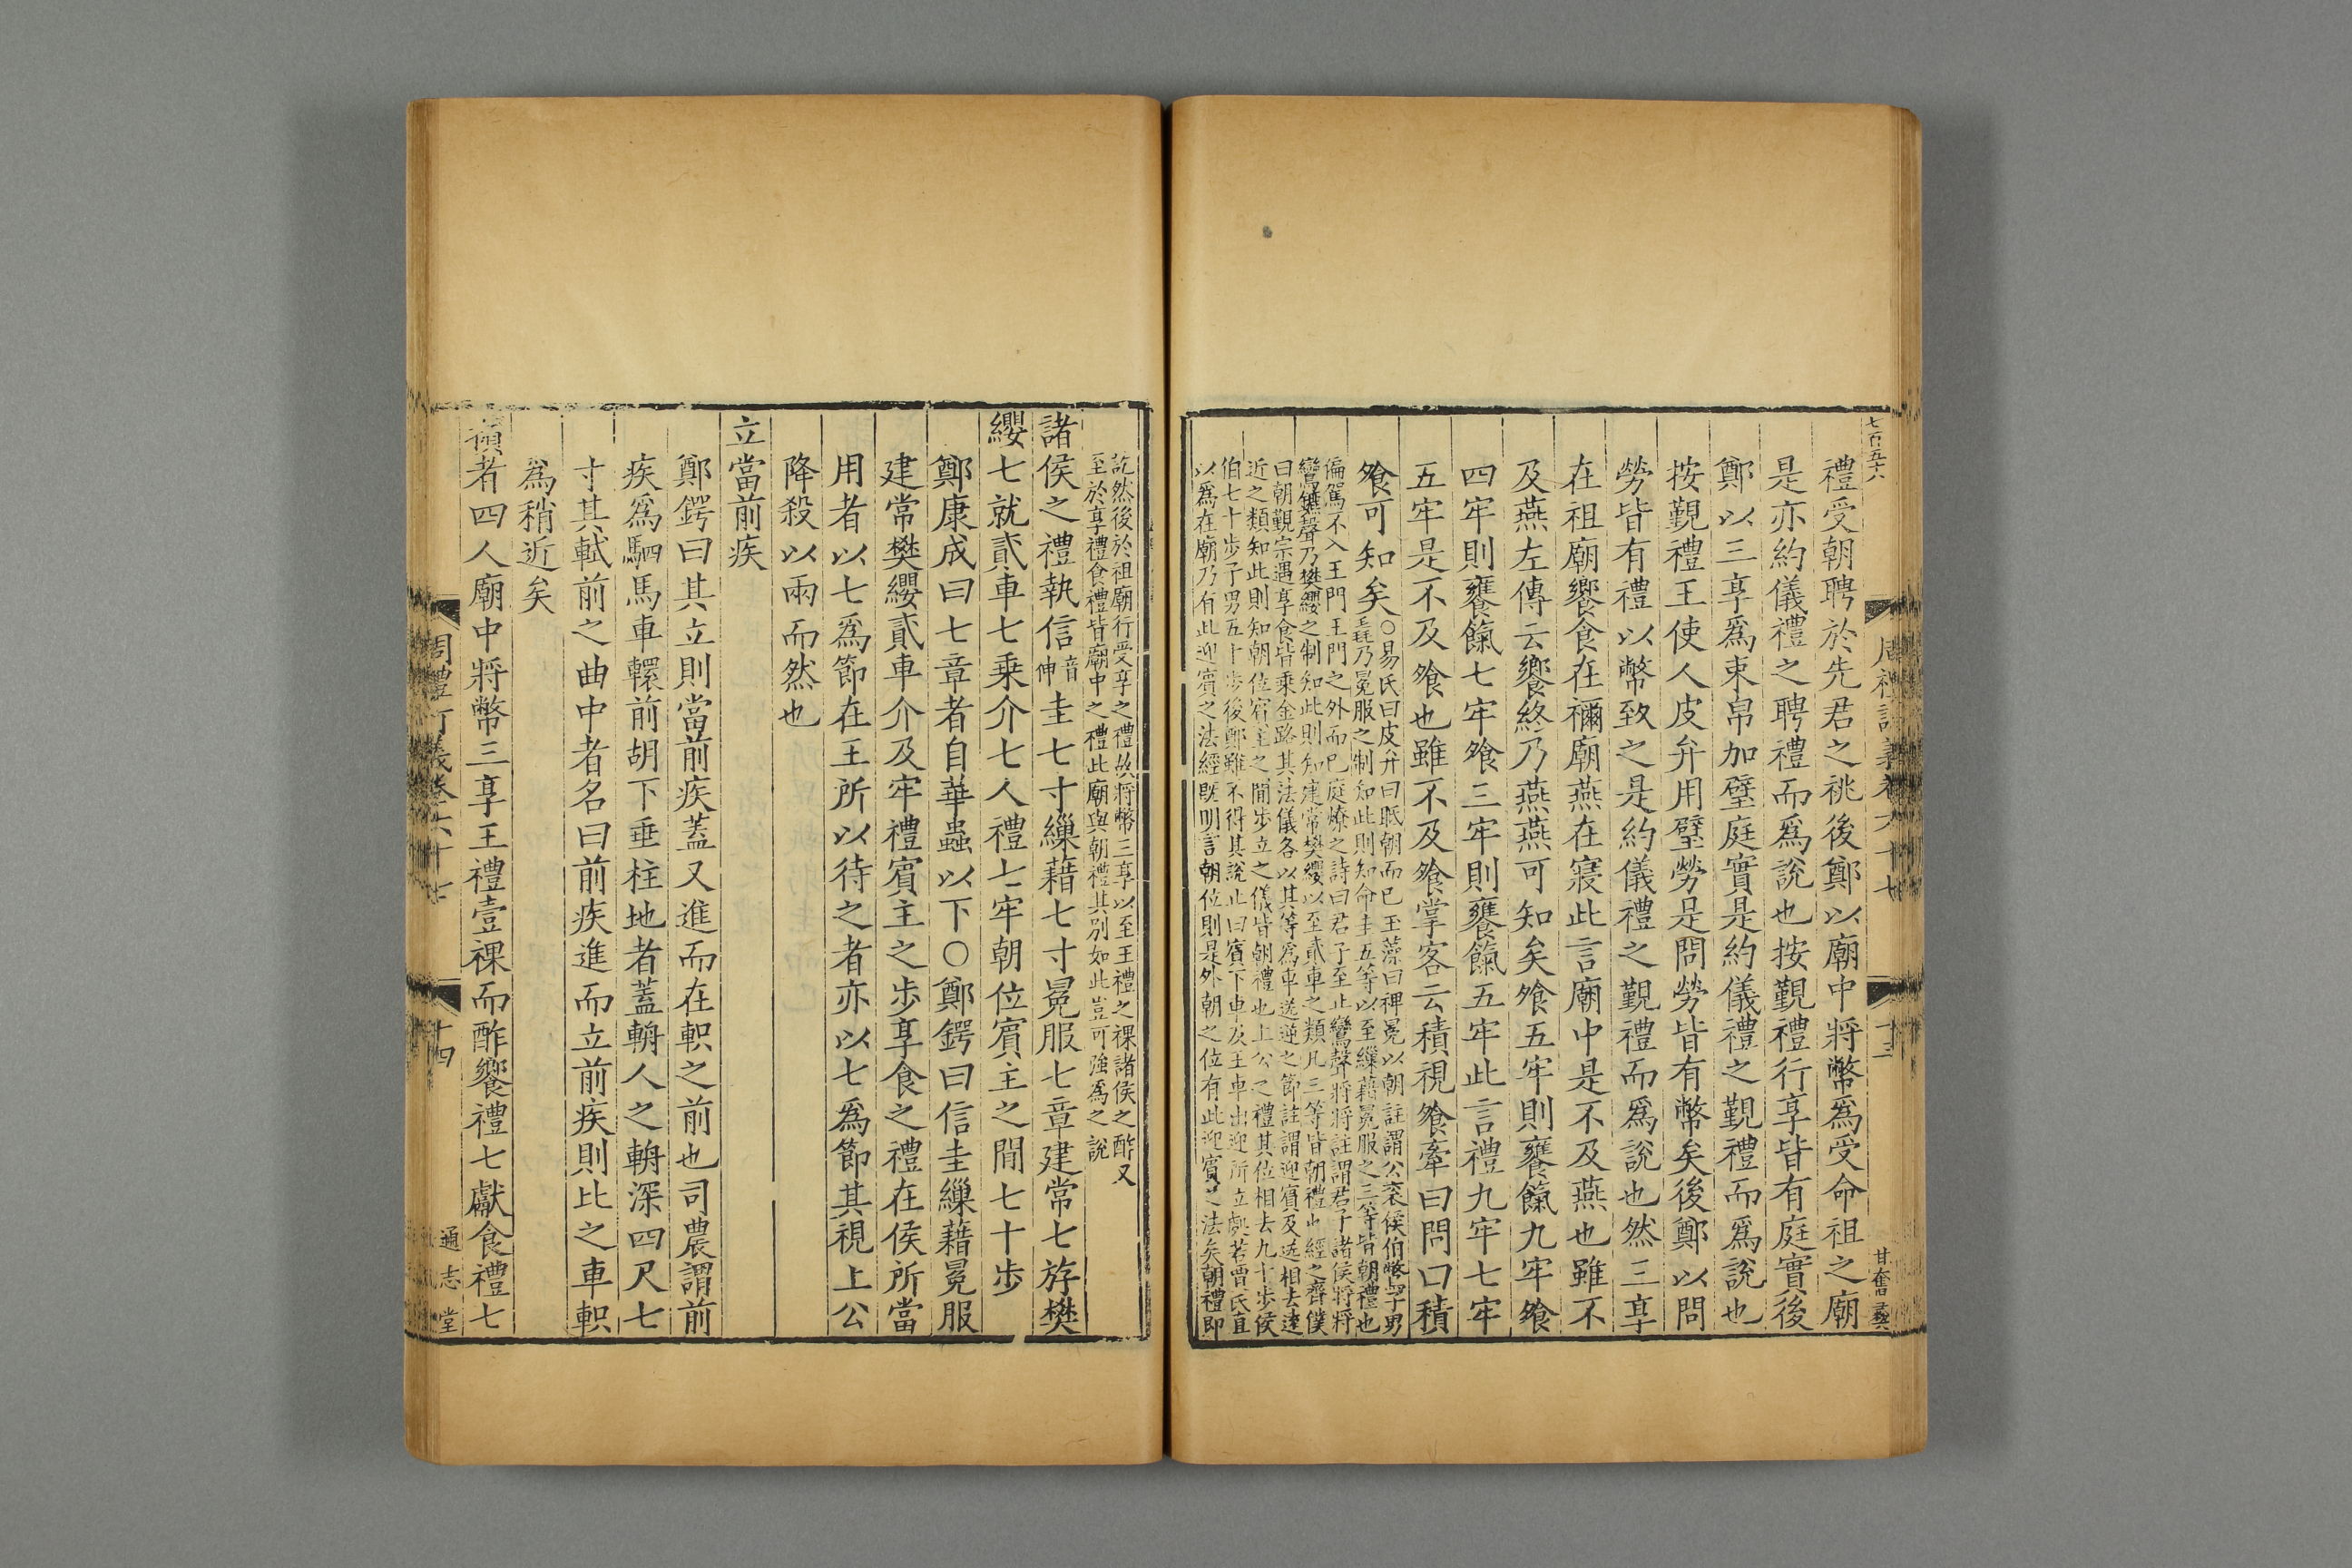 七百五六
禮受朝聘於先君之祧後鄭以廟中將幣爲受命祖之廟
是亦約儀禮之聘禮而爲說也按覲禮行享皆有庭實後
鄭以三享爲束帛加璧庭實是約儀禮之覲禮而爲說也
按覲禮王使人皮弁用璧勞是問勞皆有幣矣後鄭以問
勞皆有禮以幣致之是約儀禮之覲禮而爲說也然三享
在祖廟饗食在禰廟燕在寢此言廟中是不及燕也雖不
及燕左傳云饗終乃燕燕可知矣飧五牢則饔餼九牢飧
四牢則饔餼七牢飧三牢則饔餼五牢此言禮九牢七牢
五牢是不及飧也雖不及飧掌客云積視飧牽曰問曰積
飧可知矣
○易氏曰皮弁曰眡朝而已玉藻曰裨冕以朝註謂公衮侯伯鷩子男
毳乃冕服之制知此則知命圭五等以至繅藉冕服之三等皆朝禮也
偏駕不入王門王門之外而已庭燎之詩曰君子至止鸞聲將將註謂君子諸侯將將
鸞鑣聲乃樊纓之制知此則知建常樊纓以至貳車之類凡三等皆朝禮也經之齊僕
曰朝覲宗遇享食皆乘金路其法儀各以其等爲車送逆之節註謂迎賓及送相去遠
近之類知此則知朝位賓主之間步立之儀皆朝禮也上公之禮其位相去九十步侯
伯七十步子男五十步後鄭雖不得其說止曰賓下車及王車出迎所立處若曾氏直
以爲在廟乃有此迎賓之法經既明言朝位則是外朝之位有此迎賓之法矣朝禮即
周禮訂義卷六十七
十三
訖然後於祖廟行受享之禮故將幣三享以至王禮之祼諸侯之酢又
至於享禮食禮皆廟中之禮此廟與朝禮其別如此豈可強爲之說
諸侯之禮執信音伸圭七寸繅藉七寸冕服七章建常七斿樊
纓七就貳車七乘介七人禮七牢朝位賓主之間七十步
鄭康成曰七章者自華蟲以下○鄭鍔曰信圭繅藉冕服
建常樊纓貳車介及牢禮賓主之步享食之禮在侯所當
用者以七爲節在王所以待之者亦以七爲節其視上公
降殺以兩而然也
立當前疾
鄭鍔曰其立則當前疾蓋又進而在軹之前也司農謂前
疾爲駟馬車轅前胡下垂柱地者蓋輈人之輈深四尺七
寸其軾前之曲中者名曰前疾進而立前疾則比之車軹
爲稍近矣
擯者四人廟中將幣三享王禮壹祼而酢饗禮七獻食禮七
周禮訂義卷六十七
十四
通志堂